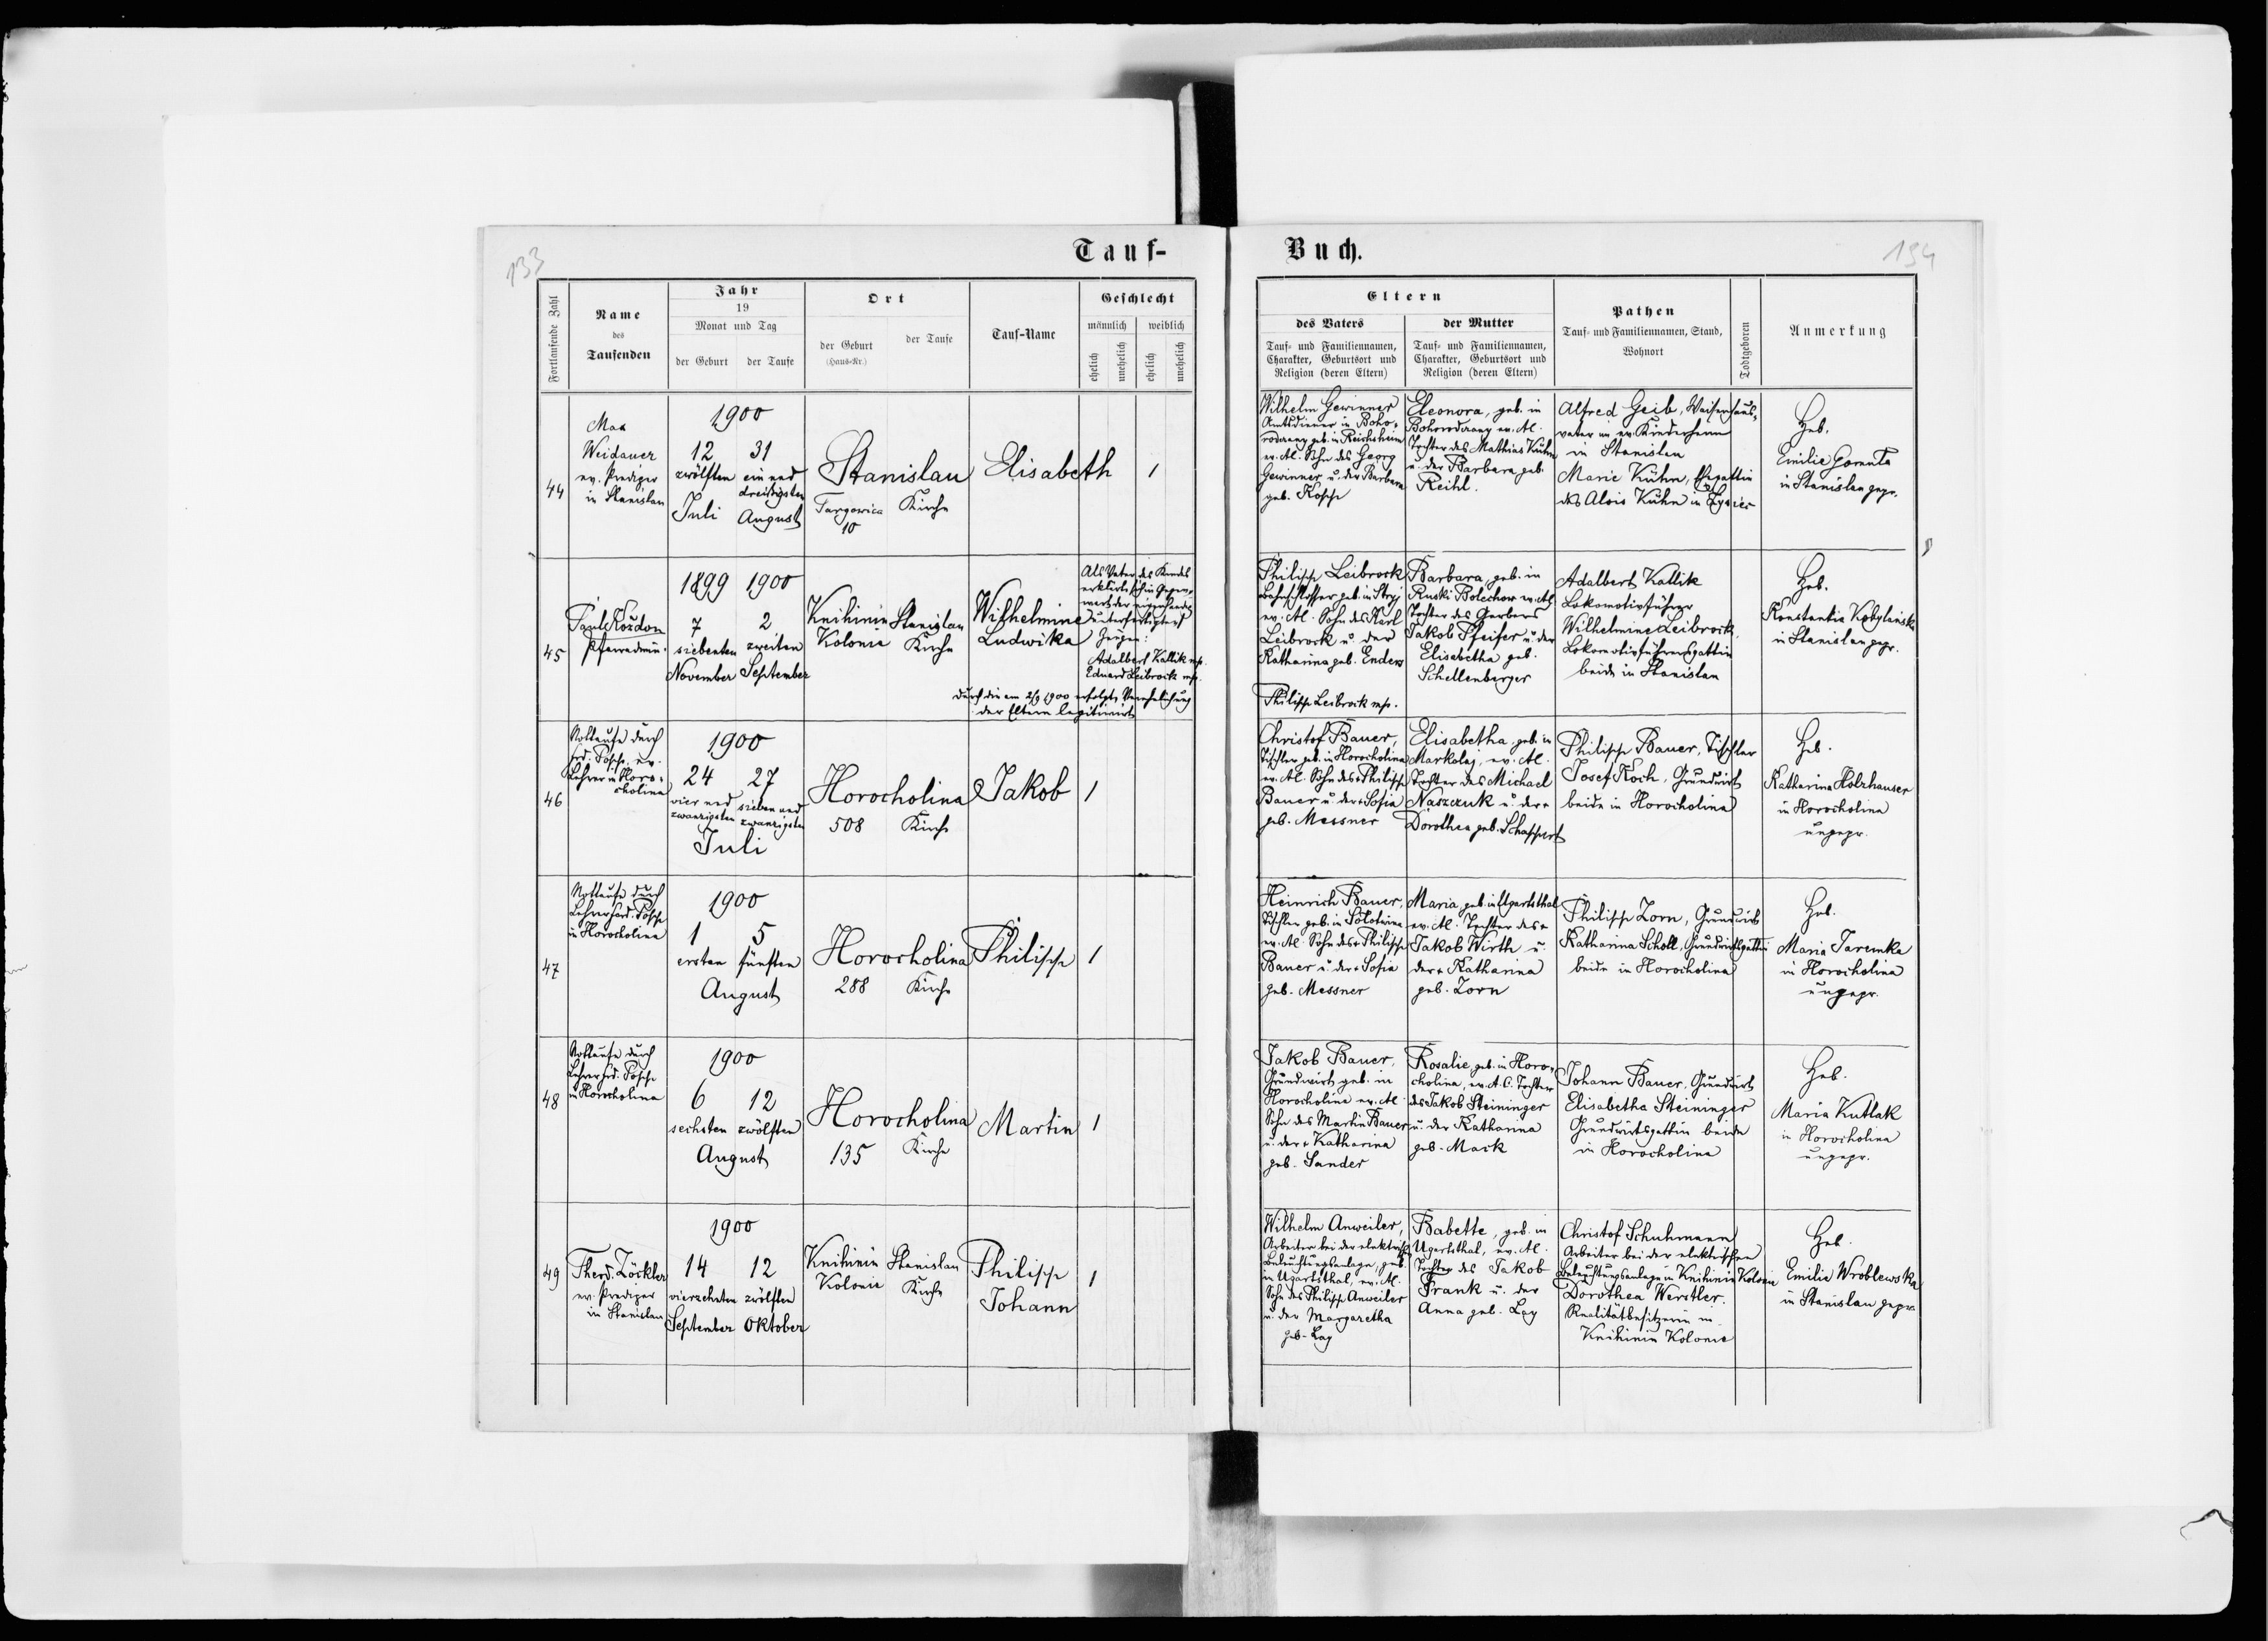 133
Tauf-
Fortlaufende Zahl
Name
des
Taufenden
Jahr
19
Monat und Tag
der Geburt
der Taufe
Ort
der Geburt
(Haus-Nr.)
der Taufe
Tauf-Name
Geschlecht
männlich
weiblich
ehelich
unehelich
ehelich
unehelich
44
Max
Weidauer
ev. Prediger
in Stanislau
1900
12 31
zwölften ein und
dreißigsten
Juli August
Stanislau
Targowica Kirche
10
Elisabeth
1
45
Paul Kozdon
Pfarradmin.
1899 1900
7 2
siebenten zweiten
November September
Knihinin Stanislau
Kolonie Kirche
Wilhelmine
Ludwika
Als Vater des Kindes
erklärte sich in Gegen-
wart der
unterfertigten
Zeugen:
Adalbert Kallik mp.
Eduard Leibrock mp.
Durch die am 2/9 1900 erfolgte Verehelichung
der Eltern legitimirt
46
Nottaufe durch
Ferd. Posche, ev.
Lehrer in Horo-
cholina
1900
24 27
vier und sieben und
zwanzigsten zwanzigsten
Juli
Horocholina
508 Kirche
Jakob
1
47
Nottaufe durch
Lehrer Ferd. Posche
in Horocholina
1900
1 5
ersten fünften
August
Horocholina
288 Kirche
Philipp
1
48
Nottaufe durch
Lehrer Ferd. Posche
in Horocholina
1900
6 12
sechsten zwölften
August
Horocholina
135 Kirche
Martin
1
49
Theod. Zöckler
ev. Prediger
in Stanislau
1900
14 12
vierzehnten zwölften
September Oktober
Knihinin Stanislau
Kolonie Kirche
Philipp
Johann
1
Buch.
134
Eltern
des Vaters
Tauf- und Familiennamen,
Charakter, Geburtsort und
Religion (deren Eltern)
der Mutter
Tauf- und Familiennamen,
Charakter, Geburtsort und
Religion (deren Eltern)
Pathen
Tauf- und Familiennamen, Stand,
Wohnort
Todtgeboren
Anmerkung
Wilhelm Gewinner
Amtsdiener in Boho-
rodczany geb. in Reichsheim
ev. AC. Sohn des Georg
Gewinner u. der Barbara
geb. Kosche
Eleonora, geb. in
Bohorodczany ev. AC.
Tochter des Mathias Kühn
u. der Barbara geb.
Reihl.
Alfred Geib, Waisenhaus-
vater im ev. Kinderheim
in Stanislau
Marie Kühn, Ehegattin
des Alois Kühn in
Heb.
Emilie Gorenta
in Stanislau gepr.
Philipp Leibrock
Bahnschlosser geb. in Stryj
ev. AC. Sohn des Karl
Leibrock u. der
Katharina geb. Enders
Philipp Leibrock mp.
Barbara, geb. in
Ruski Bolechow ev. AC.
Tochter des Gerbers
Jakob Pfeifer u. der
Elisabetha geb.
Schellenberger
Adalbert Kallik
Lokomotivführer
Wilhelmine Leibrock,
Lokomotivführersgattin
beide in Stanislau
Heb.
Konstantia Kobylańska
in Stanislau gepr.
Christof Bauer,
Tischler geb. in Horocholina
ev. AC. Sohn des + Philipp
Bauer u. der + Sofia
geb. Messner
Elisabetha, geb. in
Markolaj, ev. AC.
Tochter des Michael
Naszczuk u. der +
Dorothea geb. Schappert
Philipp Bauer, Tischler
Josef Koch, Grundwirt
beide in Horocholina
Heb.
Katharina Holzhauser
in Horocholina
ungepr.
Heinrich Bauer,
Tischler geb. in Solotwina
ev. AC. Sohn des + Philipp
Bauer u. der + Sofia
geb. Messner
Maria, geb. in Ugartsthal
ev. AC. Tochter des +
Jakob Wirth u.
der + Katharina
geb. Zorn
Philipp Zorn, Grundwirt
Katharina Scholl, Grundwirtsgattin
beide in Horocholina
Heb.
Maria Jaremka
in Horocholina
ungepr.
Jakob Bauer,
Grundwirt geb. in
Horocholina ev. AC.
Sohn des Martin Bauer
u. der + Katharina
geb. Sander
Rosalie geb. in Horo-
cholina, ev. A.C. Tochter
des Jakob Steininger
u. der Katharina
geb. Mack
Johann Bauer, Grundwirt
Elisabetha Steininger
Grundwirtsgattin beide
in Horocholina
Heb.
Maria Kutlak
in Horocholina
ungepr.
Wilhelm Anweiler,
Arbeiter bei der elektrisch.
Beleuchtungsanlage, geb.
in Ugartsthal, ev. AC.
Sohn des Philipp Anweiler
u. der Margaretha
geb. Lay
Babette, geb. in
Ugartsthal, ev. AC.
Tochter des Jakob
Frank u. der
Anna geb. Lay
Christof Schuhmann
Arbeiter bei der elektrischen
Beleuchtungsanlage in Knihinin Kolonie
Dorothea Werstler.
Realitätbesitzerin in
Knihinin Kolonie
Heb.
Emilie Wroblewska
in Stanislau gepr.